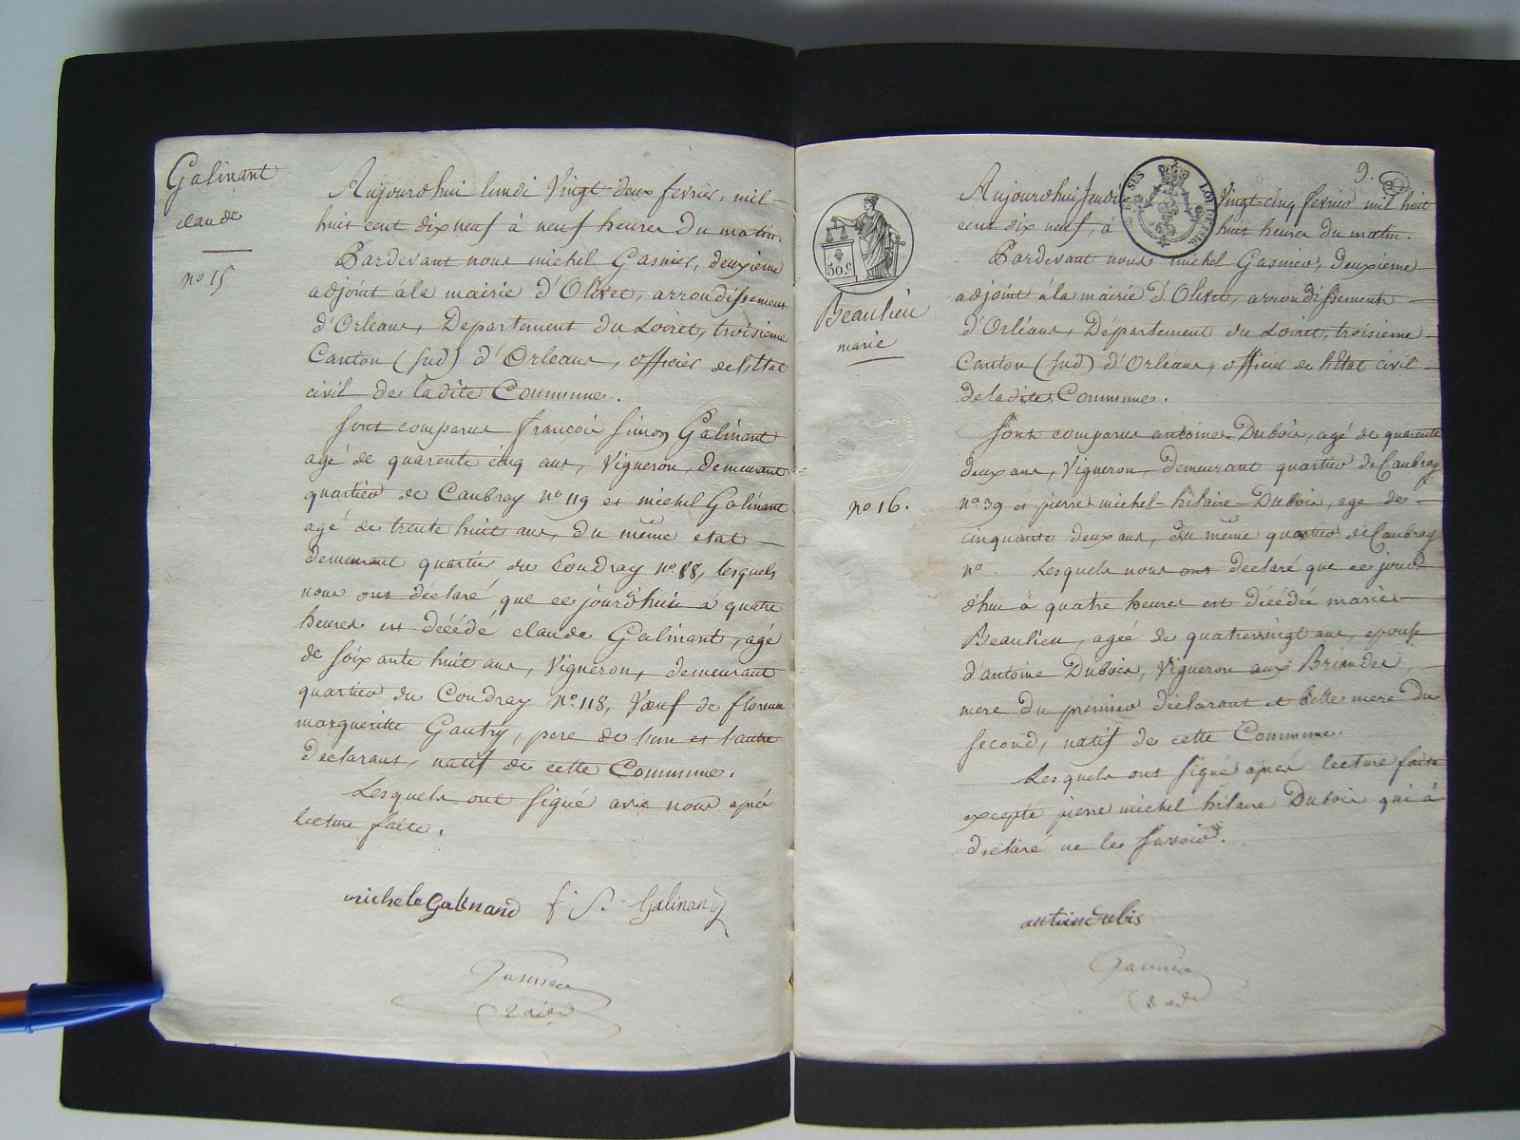 Galinant
claude
no 15
Aujourdhui lundi Vingt deux fevrier, mil
huit cent dix neuf à neuf heures du matin
Pardevant nous michel Gasnier, deuxieme
adjoint à la mairie d'Olivet, arrondissement
d'Orleans, Departement du Loiret, troisieme
Canton (sud) d'Orleans, officier de l'Etat
civil de ladite Commune.
Sont comparus françois Simon Galinant
agé de quarente cinq ans, Vigneron, demeurant
quartier de Caubray no 119 et michel Galinant
agé de trente huit ans, du même etat
demeurant quartier du Coudray no 88, lesquels
nous ont déclaré que ce jourd'hui à quatre
heures est décédé claude Galinant, agé
de soixante huit ans, Vigneron, demeurant
quartier du Coudray no 118, Vœuf de
margueritte Gautry, pere de l'un et l'autre
declarans, natif de cette Commune.
Lesquels ont signé avec nous après
lecture faite.
michele Galinand f. S. Galinand
Gasnier
2 adj
9.
50 c
Beaulieu
marie
no 16.
Aujourdhui Jeudi Vingt-cinq fevrier mil huit
cent dix neuf, à huit heures du matin.
Pardevant nous michel Gasnier, deuxieme
adjoint à la mairie d'Olivet, arrondissement
d'Orléans, Département du Loiret, troisieme
Canton (sud) d'Orleans, officier de l'Etat civil
de ladite Commune.
Sont comparus antoine Dubois, agé de quarente
deux ans, Vigneron, demeurant quartier de Caubray
no 39 et pierre michel-hilaire Dubois, agé de
cinquante deux ans, du même quartier de Caubray
no Lesquels nous ont declaré que ce jourd
dhui à quatre heures est décédée marie
Beaulieu, ageé de quatrevingt ans, epouse
d'antoine Dubois, Vigneron aux Briandes
mere du premier déclarant et belle mere du
second, natif de cette Commune.
Lesquels ont signé après lecture faite
excepté pierre michel hilaire Dubois qui à
declaré ne les savoir.
antoin dubis
Gasnier
2 adj